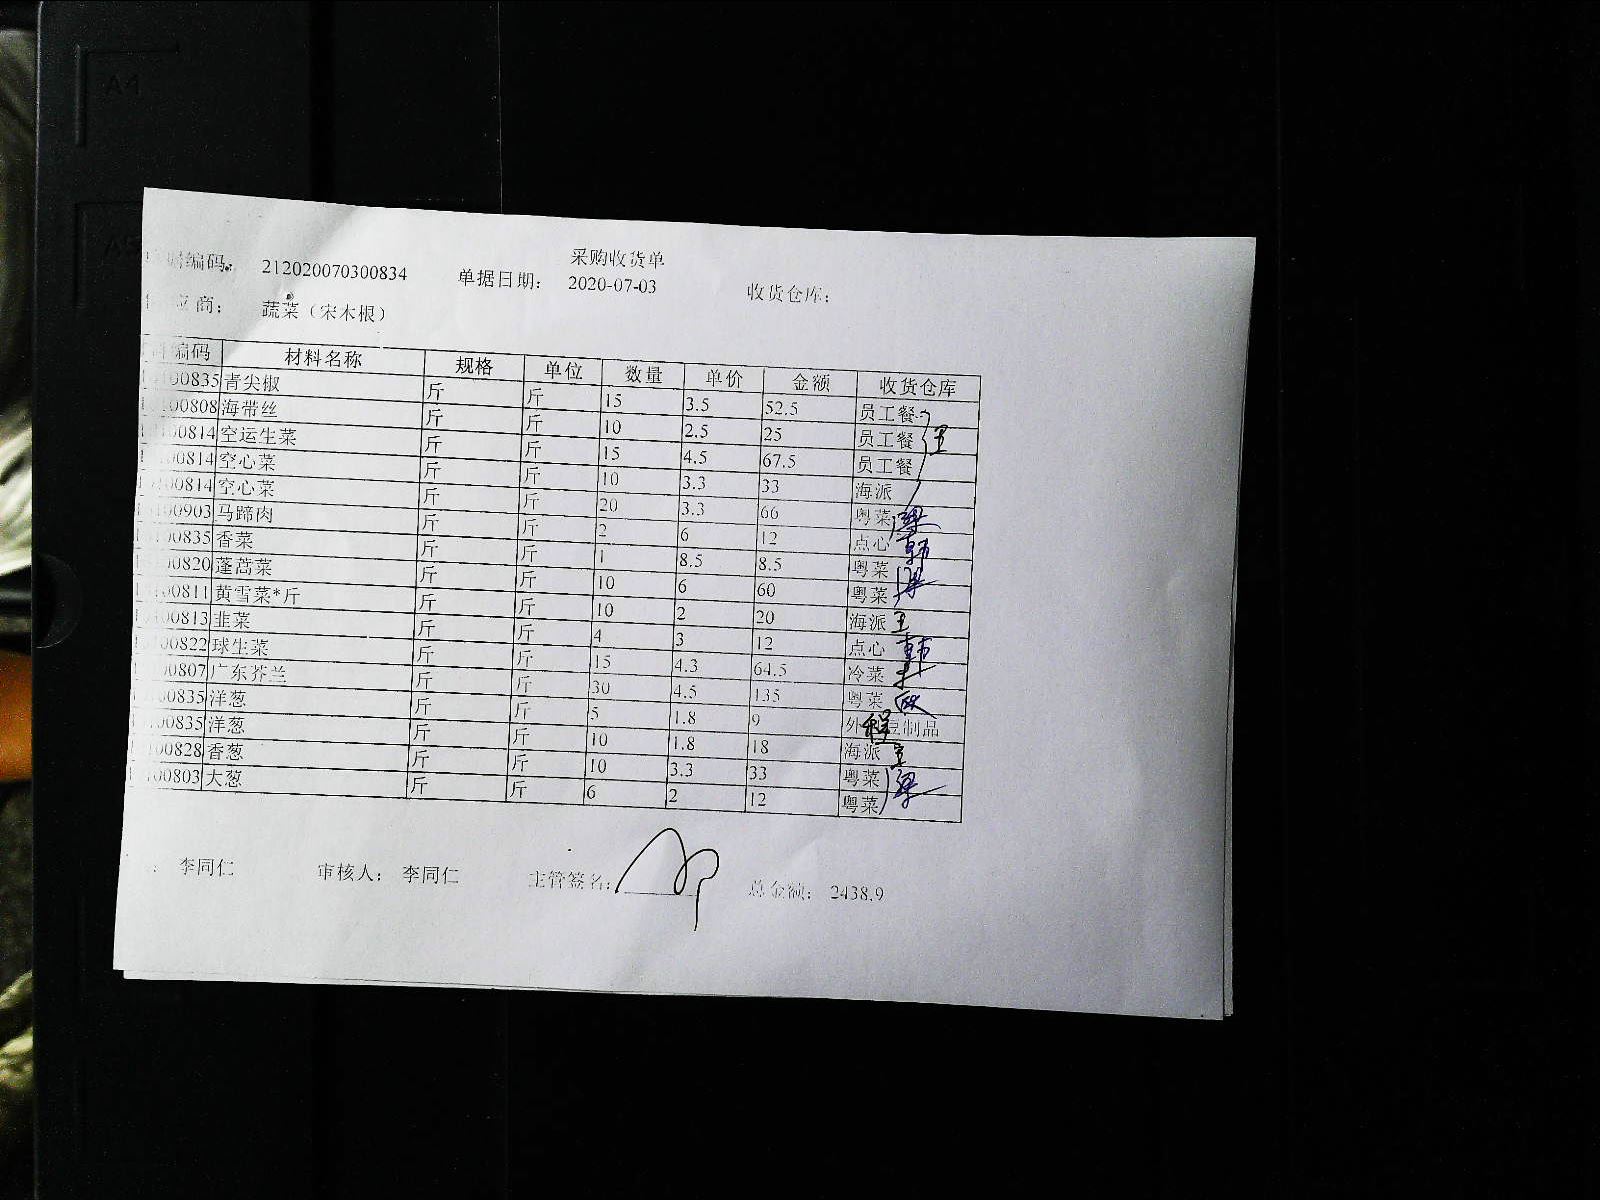 A4
A5
采购收货单
编码: 212020070300834 单据日期: 2020-07-03 收货仓库:
应商: 蔬菜（宋木根）
编码 材料名称 规格 单位 数量 单价 金额 收货仓库
100835 青尖椒 斤 斤 15 3.5 52.5 员工餐
100808 海带丝 斤 斤 10 2.5 25 员工餐 王
100814 空运生菜 斤 斤 15 4.5 67.5 员工餐
100814 空心菜 斤 斤 10 3.3 33 海派
100814 空心菜 斤 斤 20 3.3 66 粤菜 梁
100903 马蹄肉 斤 斤 2 6 12 点心 韩
100835 香菜 斤 斤 1 8.5 8.5 粤菜 梁
100820 蓬蒿菜 斤 斤 10 6 60 粤菜
100811 黄雪菜*斤 斤 斤 10 2 20 海派 王
100813 韭菜 斤 斤 4 3 12 点心 韩
100822 球生菜 斤 斤 15 4.3 64.5 冷菜
100807 广东芥兰 斤 斤 30 4.5 135 粤菜
100835 洋葱 斤 斤 5 1.8 9 外 豆制品 程
100835 洋葱 斤 斤 10 1.8 18 海派 王
100828 香葱 斤 斤 10 3.3 33 粤菜 梁
100803 大葱 斤 斤 6 2 12 粤菜
: 李同仁 审核人: 李同仁 主管签名: 总金额: 2438.9